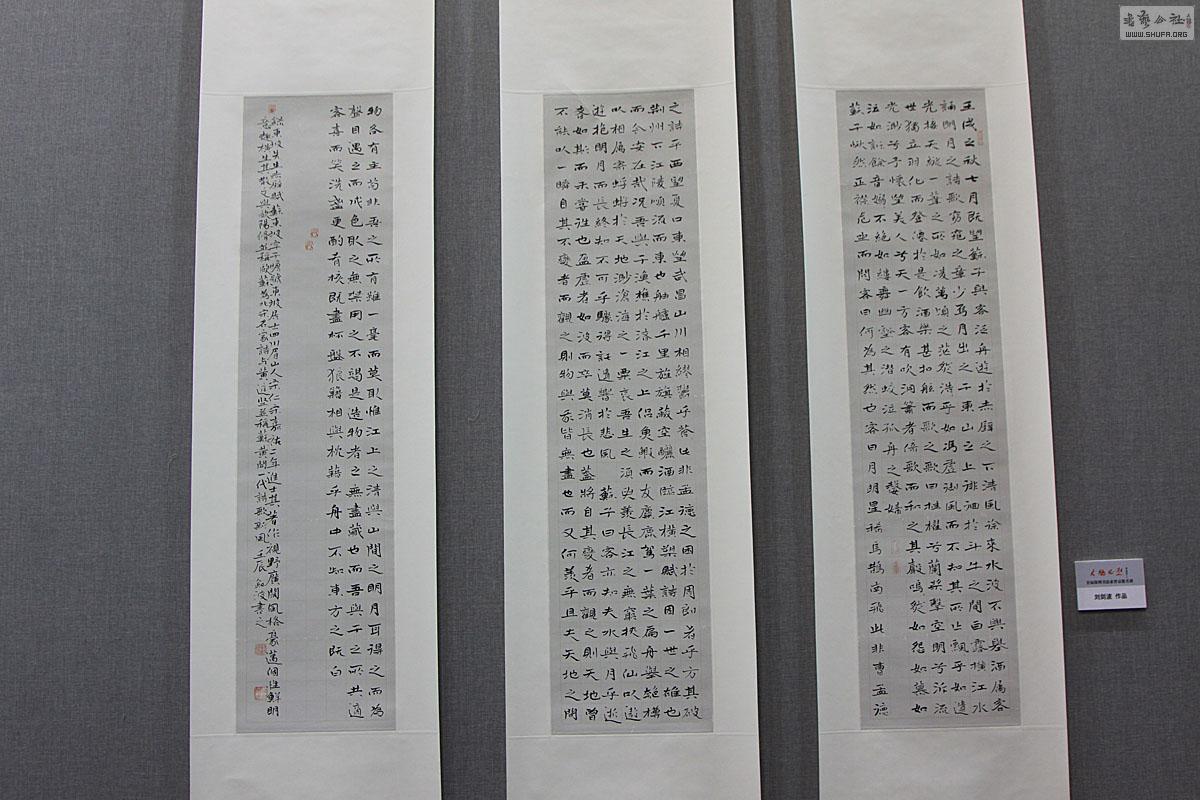 壬戌之秋七月既望蘇子與客泛舟遊於赤壁之下清風徐來水波不興舉酒屬客
誦明月之詩歌窈窕之章少焉月出之于東山之上徘徊於斗牛之間白露橫江水
光接天縱一葦之所如凌萬頃之茫然浩乎如馮虛御風而不知其所止飄乎如遺
世獨立羽化而登僊於是飲酒樂甚扣舷而歌之歌曰桂櫂兮蘭槳擊空明兮泝流
光渺兮予懷望美人兮天一方客有吹洞簫者倚歌而和之其聲嗚然如怨如慕如
泣如訴餘音嫋不絕如縷舞幽壑之潛蛟泣孤舟之嫠婦
蘇子愀然正襟危坐而問客曰何為其然也客曰月明星稀烏鵲南飛此非曹孟德
之詩乎西望夏口東望武昌山川相繆鬱乎蒼此非孟德之困於周郎者乎方其破
荊州下江陵順流而東也舳艫千里旌旗蔽空釃酒臨江橫槊賦詩固一世之雄也
而今安在哉況吾與子漁樵於江之上侶魚蝦而友麋鹿駕一葉之扁舟舉匏樽
以相屬寄蜉蝣於天地渺滄海之一粟哀吾生之須臾羨長江之無窮挾飛仙以遨
遊抱明月而長終知不可乎驟得託遺響於悲風蘇子曰客亦知夫水與月乎逝
者如斯而未嘗往也盈虛者如彼而卒莫消長也蓋將自其變者而觀之則天地曾
不能以一瞬自其不變者而觀之則物與我皆無盡也而又何羨乎且夫天地之間
物各有主苟非吾之所有雖一毫而莫取惟江上之清與山間之明月耳得之而為
聲目遇之而成色取之無禁用之不竭是造物者之無盡藏也而吾與子之所共適
客喜而笑洗盞更酌肴核既盡杯盤狼籍相與枕藉乎舟中不知東方之既白
錄東坡先生赤壁賦蘇東坡字子瞻號東坡居士四川眉山人宋仁宗嘉祐二年進士其著作視野廣闊風格豪邁個性鮮明
意趣橫生其散文與歐陽脩並稱歐蘇為八宋名家詩与黃庭堅並稱蘇黃開一代詩歌新風壬辰劍波書之
刘剑波 作品
书艺公社
WWW.SHUFA.ORG